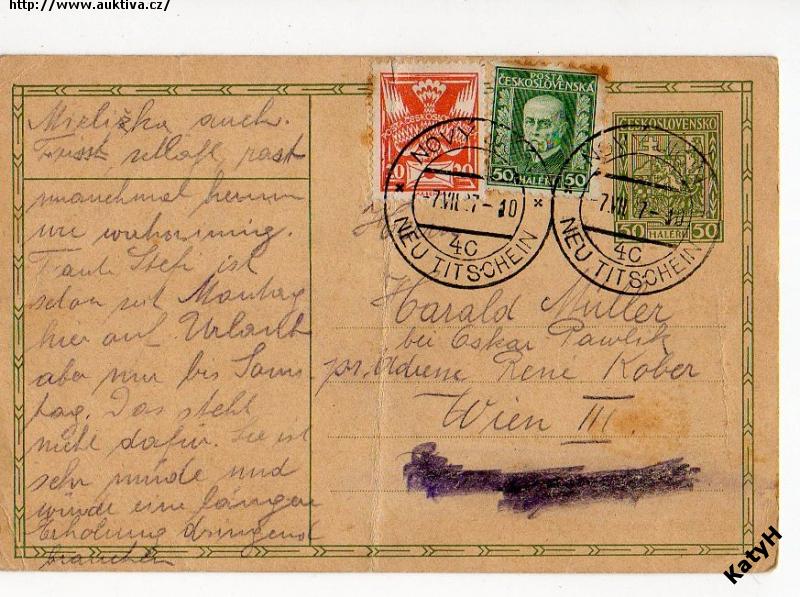 http://www.auktiva.cz/
POŠTA ČESKOSLOVENSKÁ
20 20
POŠTA
ČESKOSLOVENSKÁ
50 HALÉŘŮ 50
ČESKOSLOVENSKO
50 HALÉŘŮ 50
NOVÝ JIČÍN
-7.VII.27-10
4C
NEU TITSCHEIN
-7.VII.27-10
4C
NEU TITSCHEIN
auch.
manchmal herum
wie
Tante Stefi ist
schon seit Montag
hier auf Urlaub
aber nur bis Sams-
tag. Das steht
nicht dafür. Sie ist
sehr müde und
würde eine längere
Erholung dringend
brauchen
Herrn
Harald Müller
bei Oskar Pawlik
pr. Adresse René Kober
Wien III.
KatyH